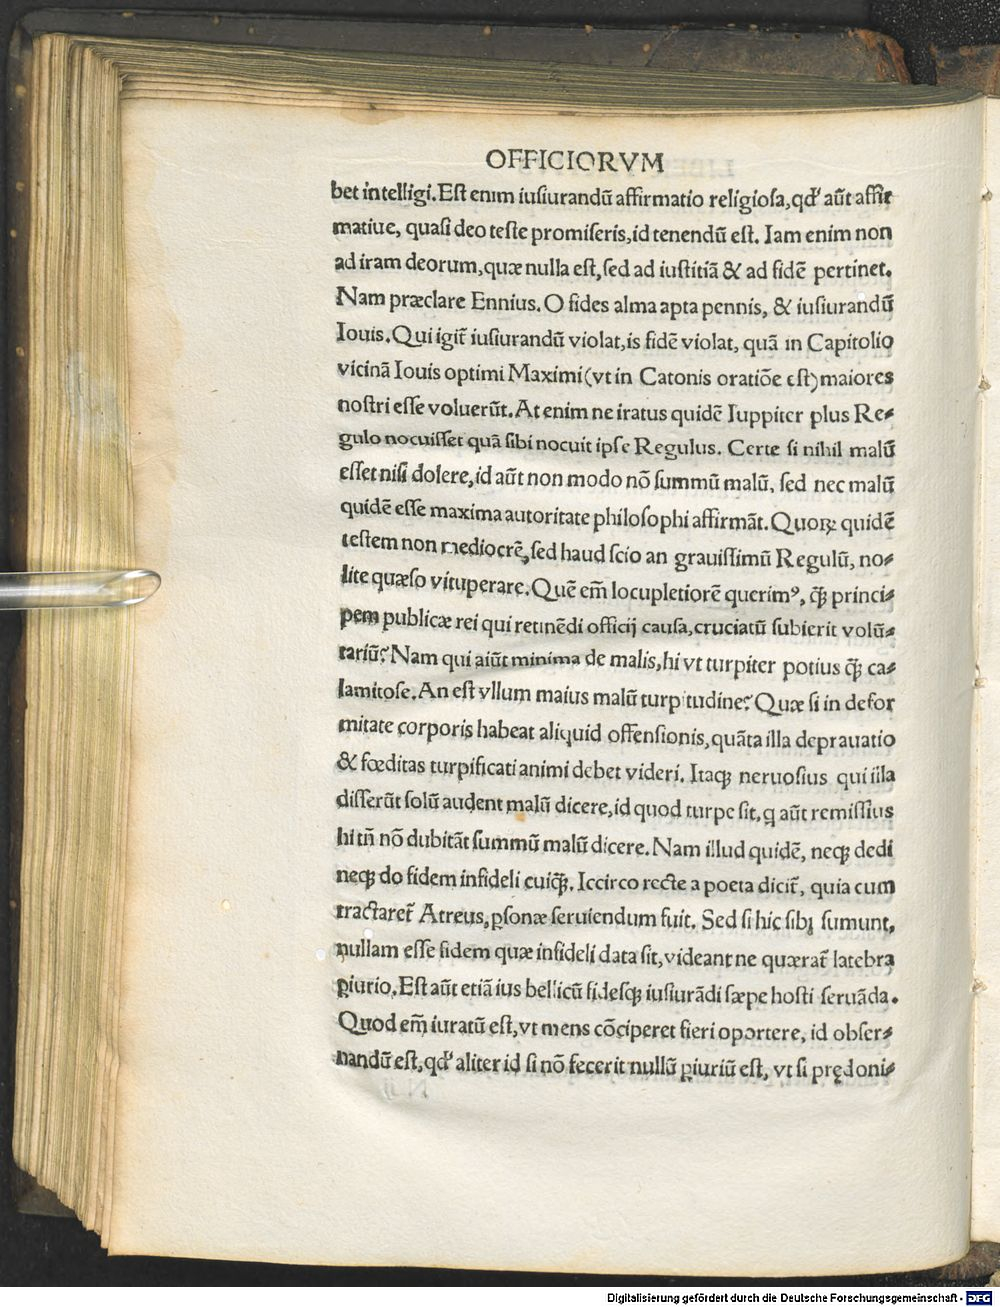 OFFICIORVM
bet intelligi. Est enim iusiurandū affirmatio religiosa, qđ aūt affir
matiue, quasi deo teste promiseris, id tenendū est. Iam enim non
ad iram deorum, quæ nulla est, sed ad iustitiā & ad fidē pertinet.
Nam præclare Ennius. O fides alma apta pennis, & iusiurandū
Iouis. Qui igit̃ iusiurandū violat, is fidē violat, quā in Capitolio
vicinā Iouis optimi Maximi (vt in Catonis oratiōe est) maiores
nostri esse voluerūt. At enim ne iratus quidē Iuppiter plus Re-
gulo nocuisset quā sibi nocuit ipse Regulus. Certe si nihil malū
esset nisi dolere, id aūt non modo nō summū malū, sed nec malū
quidē esse maxima autoritate philosophi affirmāt. Quoꝝ quidē
testem non mediocrē, sed haud scio an grauissimū Regulū, no-
lite quæso vituperare. Quē em̃ locupletiorē querimꝰ, q̃ꝫ princi-
pem publicæ rei qui retinēdi officij causa, cruciatū subierit volū-
tariū? Nam qui aiūt minima de malis, hi vt turpiter potius q̃ꝫ ca-
lamitose. An est vllum maius malū turpitudine? Quæ si in defor
mitate corporis habeat aliquid offensionis, quāta illa deprauatio
& fœditas turpificati animi debet videri. Itaqꝫ neruosius qui illa
disserūt solū audent malū dicere, id quod turpe sit, q aūt remissius
hi tñ nō dubitāt summū malū dicere. Nam illud quidē, neqꝫ dedi
neqꝫ do fidem infideli cuiq̃ꝫ. Iccirco recte a poeta dicit̃, quia cum
tractaret̃ Atreus, ꝑsonæ seruiendum fuit. Sed si hic sibi sumunt,
nullam esse fidem quæ infideli data sit, videant ne quærat̃ latebra
ꝑiurio. Est aūt etiā ius bellicū fidesqꝫ iusiurādi sæpe hosti seruāda.
Quod em̃ iuratū est, vt mens cōciperet fieri oportere, id obser-
nandū est, qđ aliter id si nō fecerit nullū ꝑiuriū est, vt si prędoni-
Digitalisierung gefördert durch die Deutsche Forschungsgemeinschaft - DFG